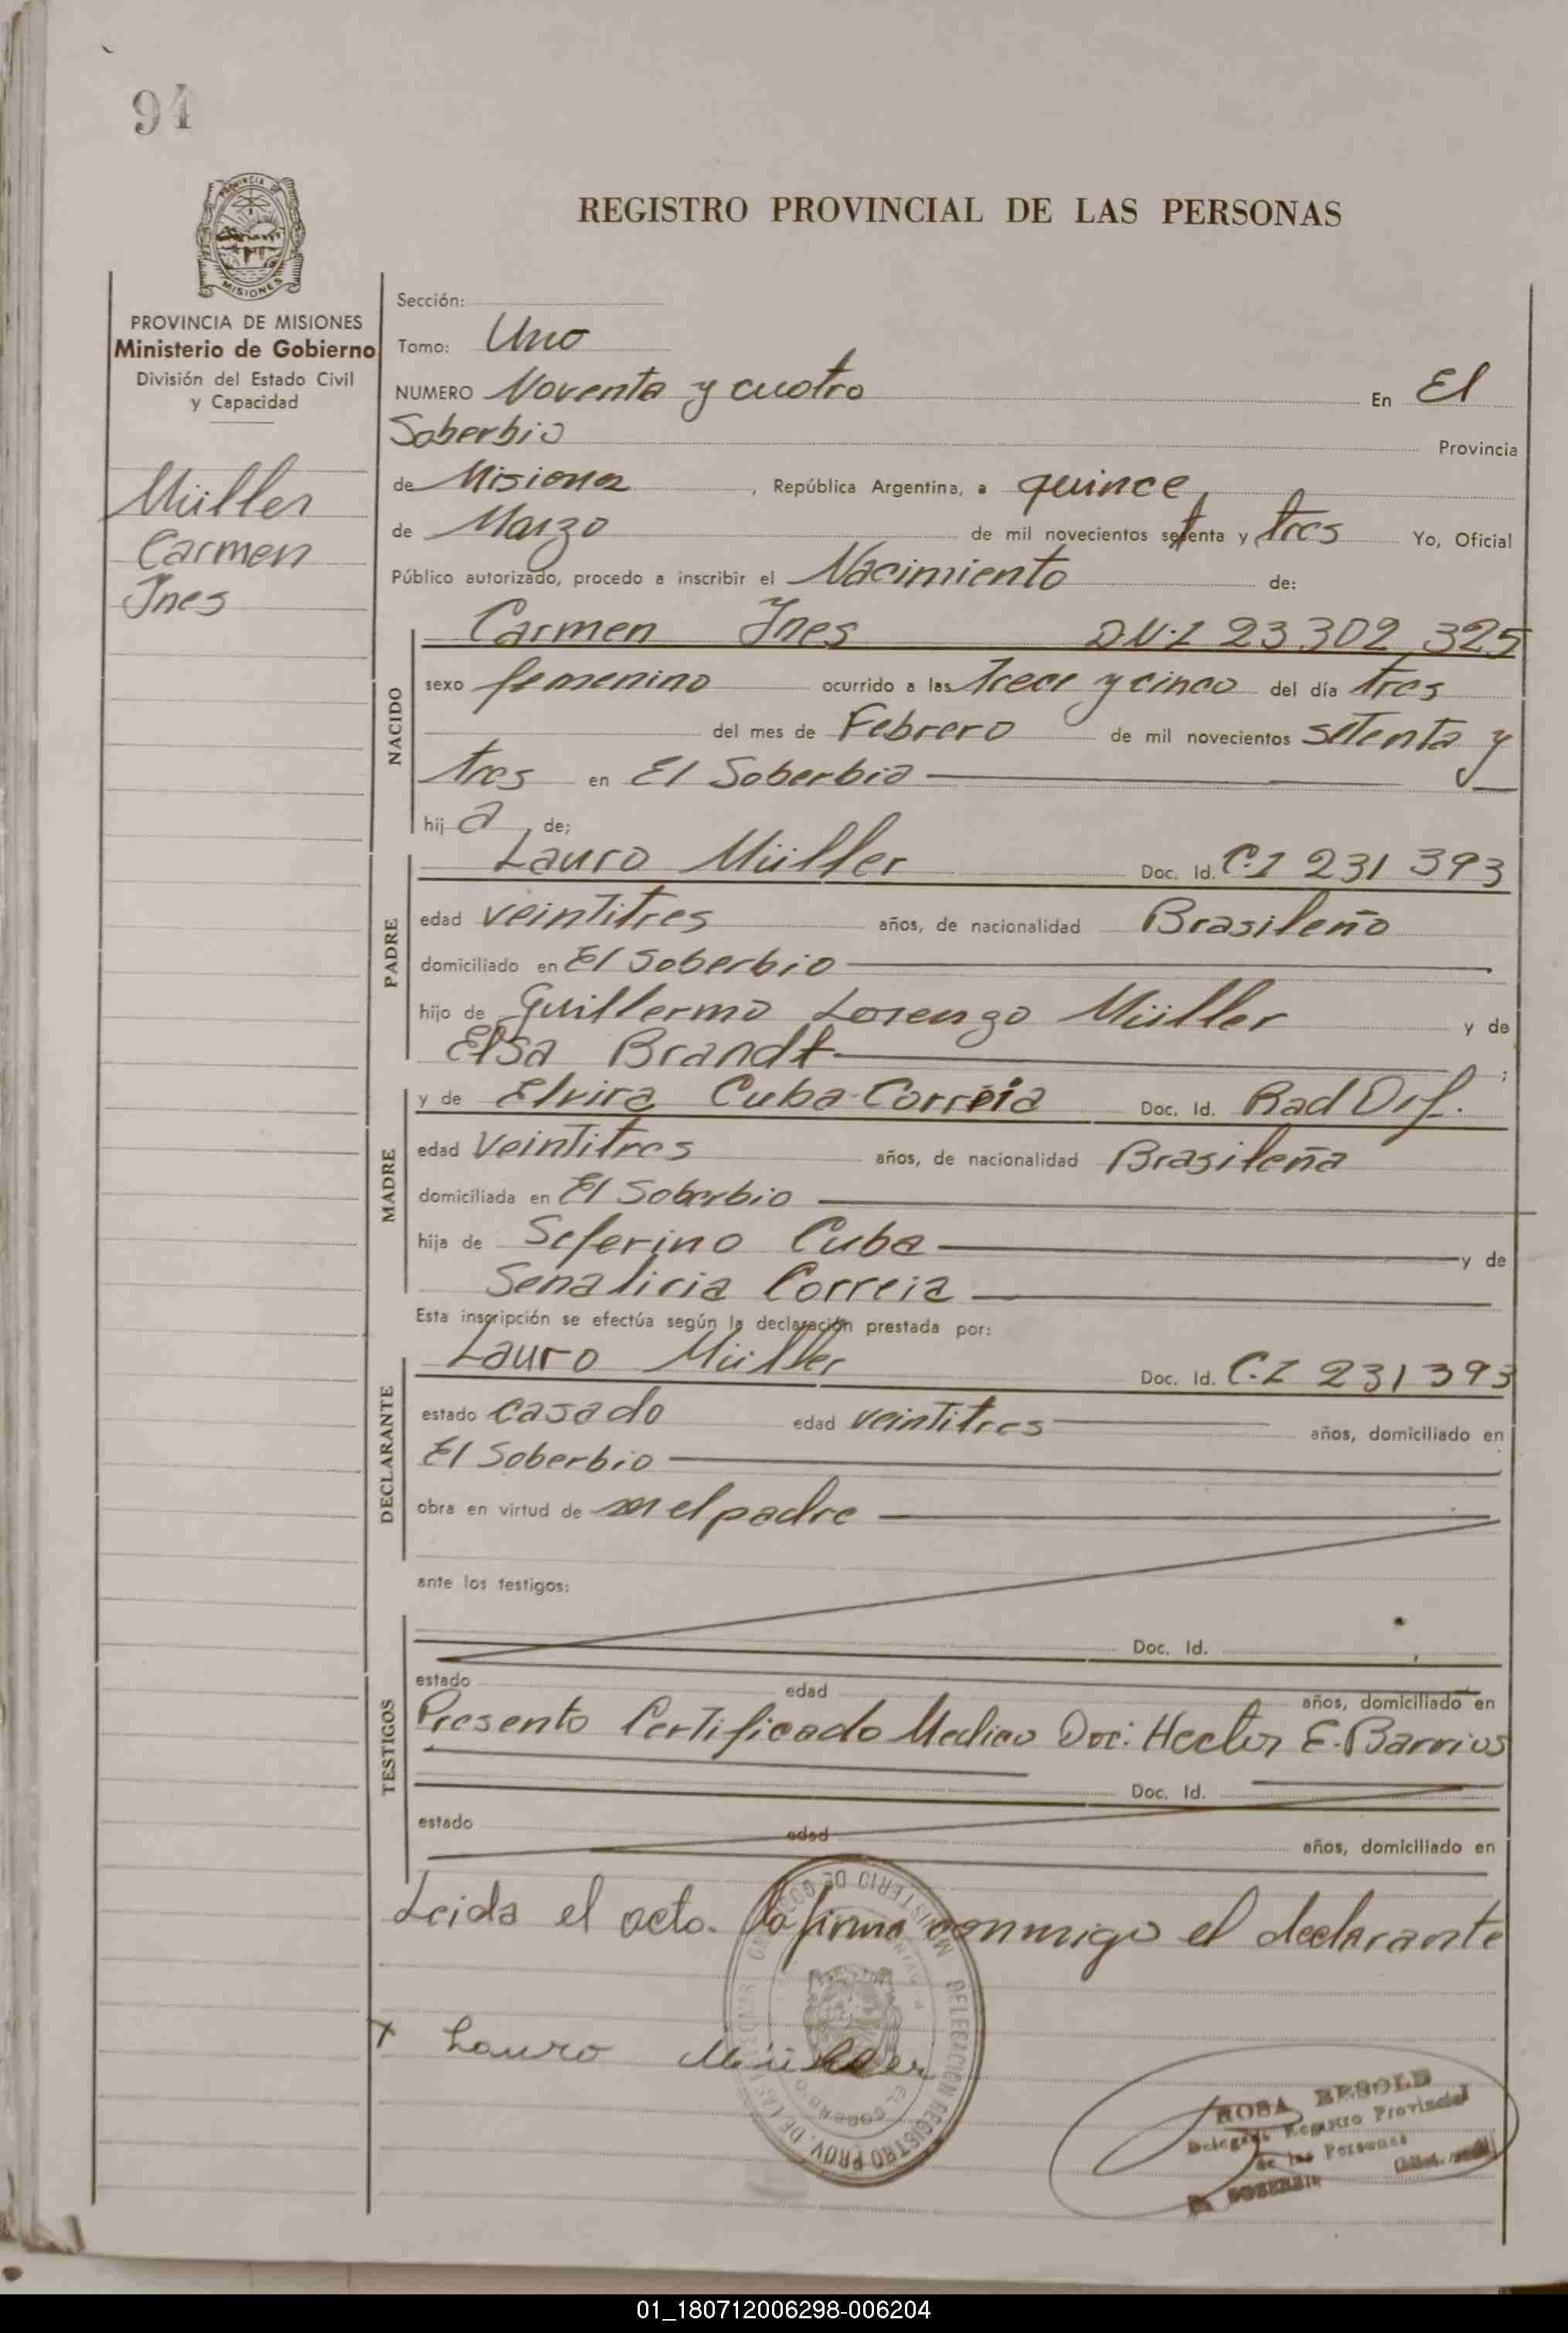 94
PROVINCIA DE
MISIONES
REGISTRO PROVINCIAL DE LAS PERSONAS
PROVINCIA DE MISIONES
Ministerio de Gobierno
División del Estado Civil
y Capacidad
Müller
Carmen
Ines
Sección:
Tomo: Uno
NUMERO Noventa y cuatro En El
Soberbio Provincia
de Misiones, República Argentina, a quince
de Marzo de mil novecientos setenta y tres Yo, Oficial
Público autorizado, procedo a inscribir el Nacimiento de:
NACIDO
Carmen Ines D.N.I 23.302.325
sexo femenino ocurrido a las trece y cinco del día tres
del mes de Febrero de mil novecientos setenta y
tres en El Soberbio
hij a de;
PADRE
Lauro Müller Doc. Id. C.I 231 393
edad veintitres años, de nacionalidad Brasileño
domiciliado en El Soberbio
hijo de Guillermo Lorenzo Müller y de
Elsa Brandt ;
MADRE
y de Elvira Cuba Correia Doc. Id. Rad Def.
edad veintitres años, de nacionalidad Brasileña
domiciliada en El Soberbio
hija de Seferino Cuba y de
Senalicia Correia
Esta inscripción se efectúa según la declaración prestada por:
DECLARANTE
Lauro Müller Doc. Id. C.I 231393
estado casado edad veintitres años, domiciliado en
El Soberbio
obra en virtud de el padre
ante los testigos:
TESTIGOS
Doc. Id.
estado edad años, domiciliado en
Presento Certificado Medico Doc: Hector E. Barrios
Doc. Id.
estado edad años, domiciliado en
Leida el acto. la firma conmigo el declarante
x Lauro Müller
MINISTERIO DE GOBIERNO
DELEGACION REGISTRO PROV. DE LAS PERSONAS
EL SOBERBIO
ROSA BESOLD
Delegada Registro Provincial
de las Personas
EL SOBERBIO
01_180712006298-006204